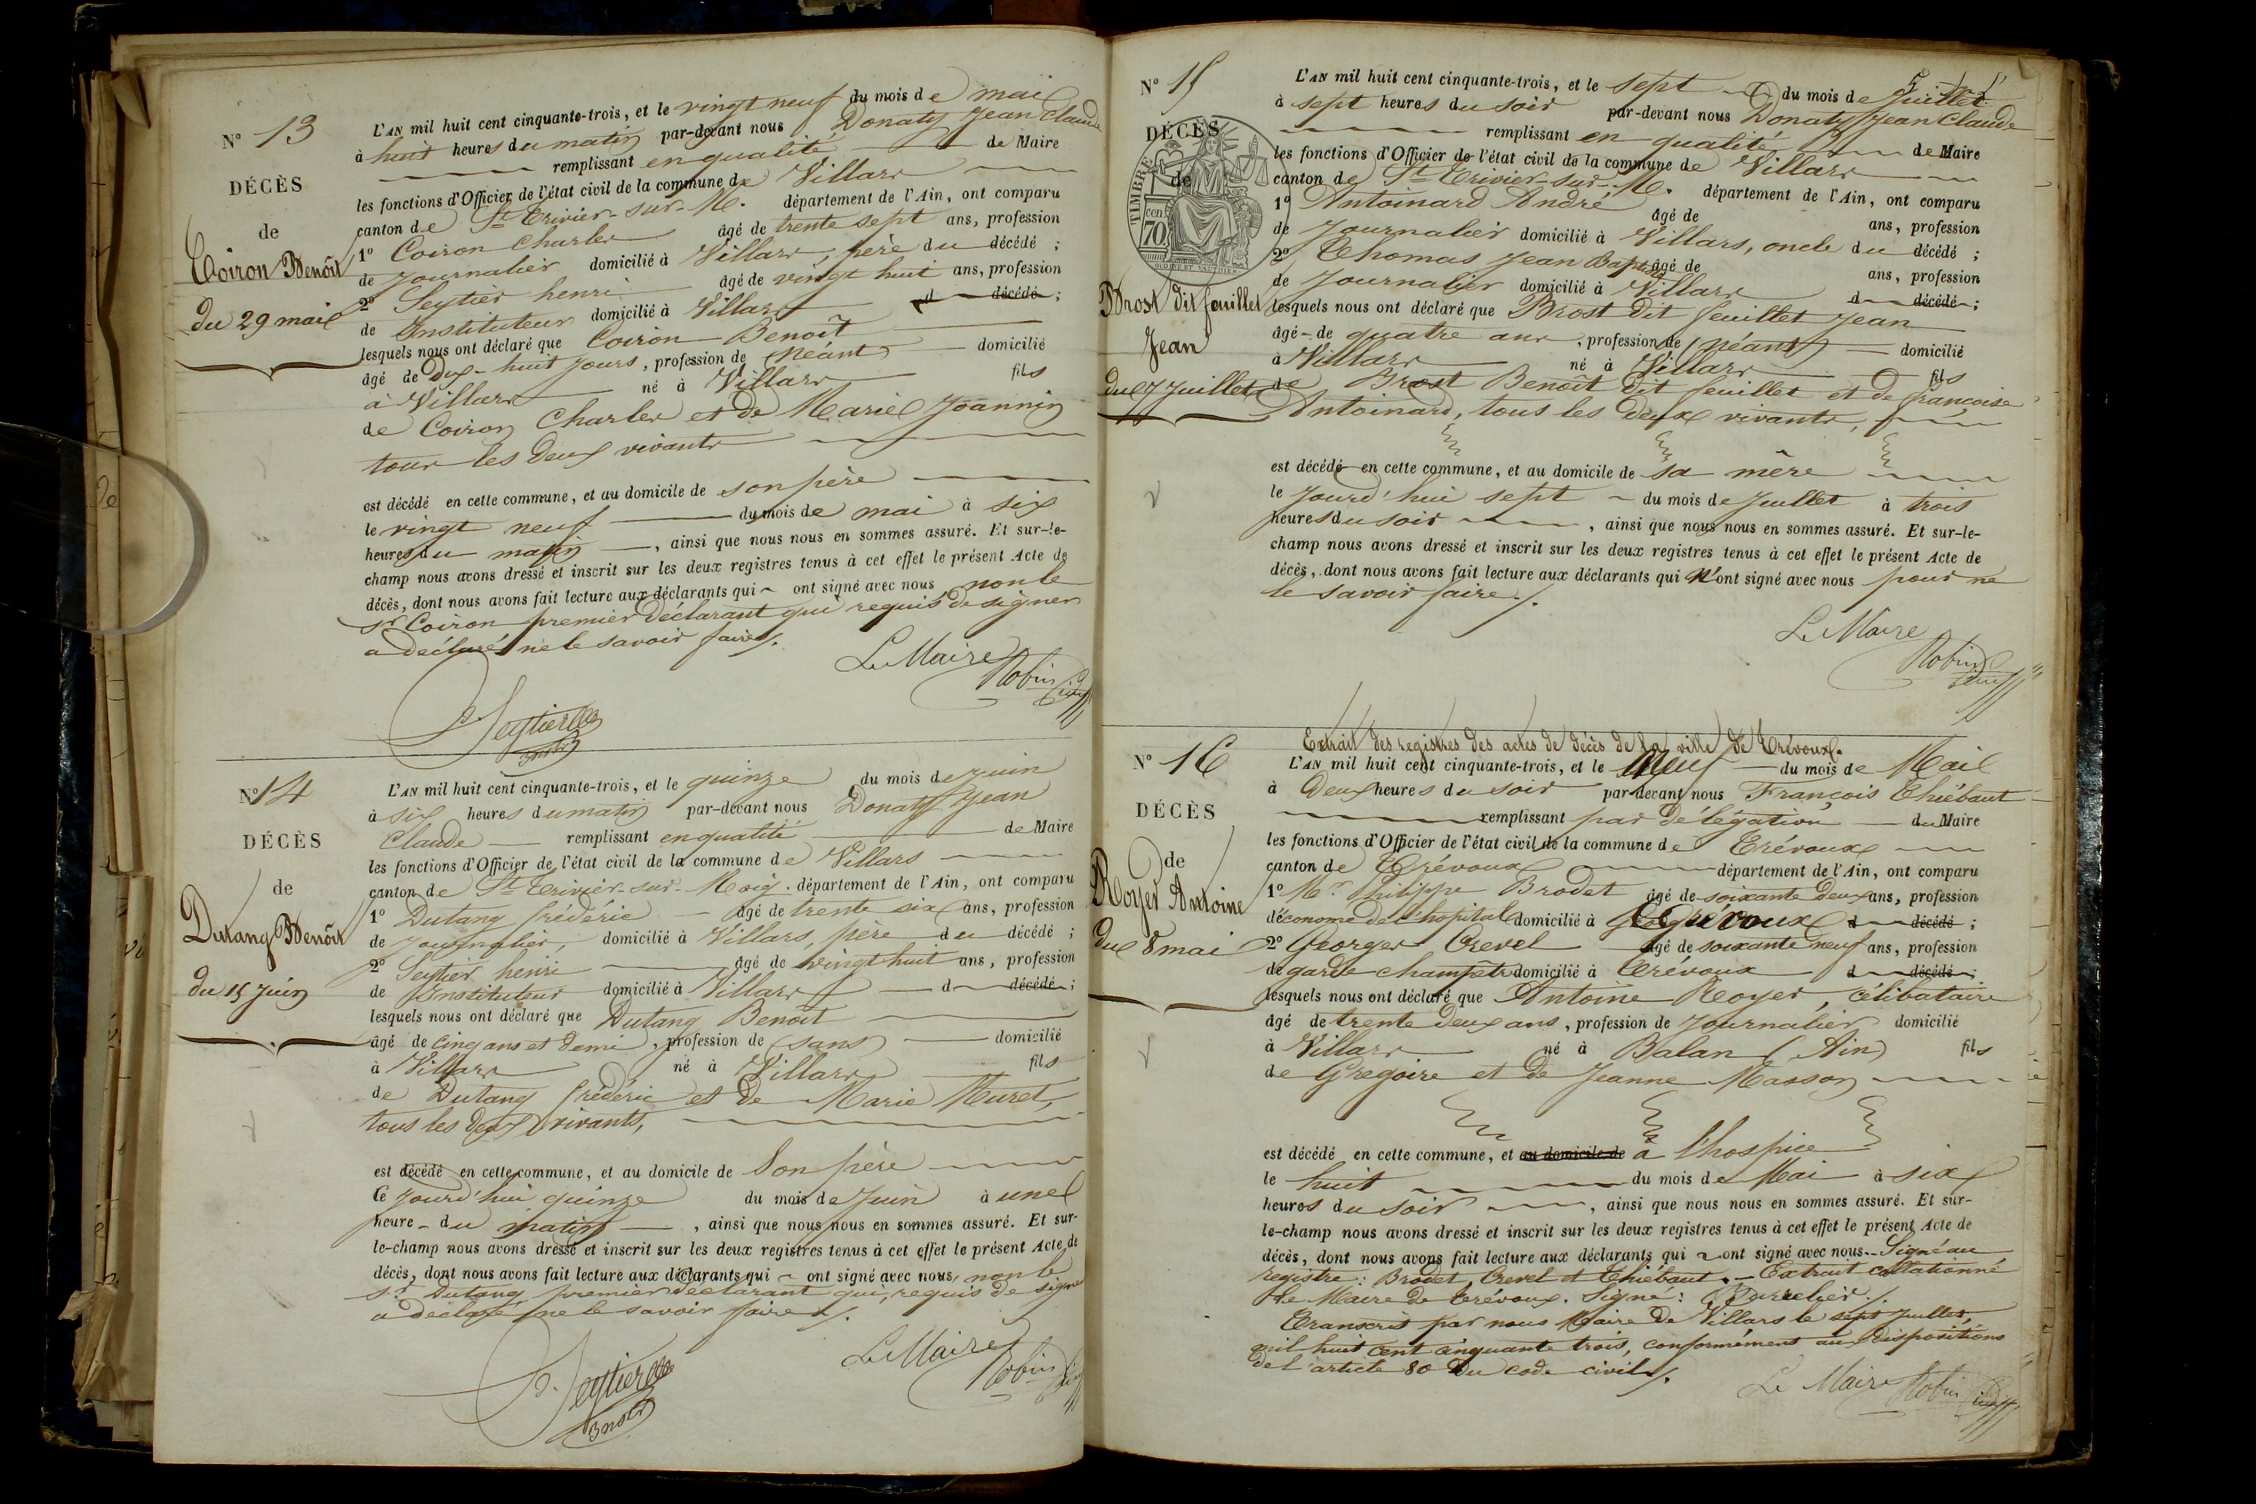 N° 13
DÉCÈS
de
Coiron Benoît
du 29 mai
L'AN mil huit cent cinquante-trois, et le vingt neuf du mois de mai
à huit heures du matin par-devant nous Donaty Jean Claude
remplissant en qualité de Maire
les fonctions d'Officier de l'état civil de la commune de Villars
canton de St Trivier-sur-M. département de l'Ain, ont comparu
1° Coiron Charles âgé de trente sept ans, profession
de Journalier domicilié à Villars, père du décédé ;
2° Seytier henri âgé de vingt huit ans, profession
de Instituteur domicilié à Villars d décédé ;
lesquels nous ont déclaré que Coiron Benoît
âgé de dix-huit jours, profession de (Néant) domicilié
à Villars né à Villars fils
de Coiron Charles et de Marie Joannin
tous les deux vivants
est décédé en cette commune, et au domicile de son père
le vingt neuf du mois de mai à six
heures du matin, ainsi que nous nous en sommes assuré. Et sur-le-
champ nous avons dressé et inscrit sur les deux registres tenus à cet effet le présent Acte de
décès, dont nous avons fait lecture aux déclarants qui ont signé avec nous non le
sr Coiron premier déclarant qui requis de signer
a déclaré ne le savoir faire.
Le Maire
Robin
Seytier
N° 14
DÉCÈS
de
Dutang Benoît
du 15 Juin
L'AN mil huit cent cinquante-trois, et le quinze du mois de juin
à six heures du matin par-devant nous Donaty Jean
Claude remplissant en qualité de Maire
les fonctions d'Officier de l'état civil de la commune de Villars
canton de St Trivier-sur-Moig. département de l'Ain, ont comparu
1° Dutang frédéric âgé de trente six ans, profession
de Journalier, domicilié à Villars, père du décédé ;
2° Seytier henri âgé de vingt huit ans, profession
de Instituteur domicilié à Villars d décédé ;
lesquels nous ont déclaré que Dutang Benoît
âgé de cinq ans et demi, profession de (sans) domicilié
à Villars né à Villars fils
de Dutang frédéric et de Marie Muret,
tous les deux vivants,
est décédé en cette commune, et au domicile de Son père
Ce Jourd'hui quinze du mois de Juin à une
heure du matin, ainsi que nous nous en sommes assuré. Et sur-
le-champ nous avons dressé et inscrit sur les deux registres tenus à cet effet le présent Acte de
décès, dont nous avons fait lecture aux déclarants qui ont signé avec nous, non le
sr Dutang premier déclarant qui, requis de signer
a déclaré ne le savoir faire.
Le Maire
Robin
Seytier
N° 15
DÉCÈS
de
TIMBRE
70 cen
Brost dit feuillet
Jean
du 7 Juillet
L'AN mil huit cent cinquante-trois, et le sept du mois de Juillet
à sept heures du soir par-devant nous Donaty Jean Claude
remplissant en qualité de Maire
les fonctions d'Officier de l'état civil de la commune de Villars
canton de St Trivier-sur-M. département de l'Ain, ont comparu
1° Antoinard André âgé de ans, profession
de Journalier domicilié à Villars, oncle du décédé ;
2° Thomas Jean Baptiste âgé de ans, profession
de Journalier domicilié à Villars d décédé ;
lesquels nous ont déclaré que Brost dit feuillet Jean
âgé de quatre ans, profession de (néant) domicilié
à Villars né à Villars fils
de Brost Benoît dit feuillet et de françoise
Antoinard, tous les deux vivants,
est décédé en cette commune, et au domicile de sa mère
le Jourd'hui sept du mois de Juillet à trois
heures du soir, ainsi que nous nous en sommes assuré. Et sur-le-
champ nous avons dressé et inscrit sur les deux registres tenus à cet effet le présent Acte de
décès, dont nous avons fait lecture aux déclarants qui n'ont signé avec nous pour ne
le savoir faire.
Le Maire
Robin
N° 16
DÉCÈS
de
Royer Antoine
du 8 mai
Extrait des registres des actes de décès de la ville de Trévoux.
L'AN mil huit cent cinquante-trois, et le Neuf du mois de Mai
à Deux heures du soir par-devant nous François Thiébaut
remplissant par délégation du Maire
les fonctions d'Officier de l'état civil de la commune de Trévoux
canton de Trévoux département de l'Ain, ont comparu
1° Mr Philippe Brodet âgé de soixante deux ans, profession
d'économe de l'hopital domicilié à Trévoux d décédé ;
2° Georges Crevel âgé de soixante neuf ans, profession
de garde champêtre domicilié à Trévoux d décédé ;
lesquels nous ont déclaré que Antoine Royer, célibataire
âgé de trente deux ans, profession de Journalier domicilié
à Villars né à Balan (Ain) fils
de Grégoire et de Jeanne Masson
est décédé en cette commune, et au domicile de à l'hospice
le huit du mois de Mai à six
heures du soir, ainsi que nous nous en sommes assuré. Et sur-
le-champ nous avons dressé et inscrit sur les deux registres tenus à cet effet le présent Acte de
décès, dont nous avons fait lecture aux déclarants qui ont signé avec nous. Signé au
registre : Brodet, Crevel et Thiébaut. Extrait collationné
le Maire de Trévoux. Signé :
Transcrit par nous Maire de Villars le sept Juillet,
mil huit cent cinquante trois, conformément aux dispositions
de l'article 80 du code civil.
Le Maire Robin